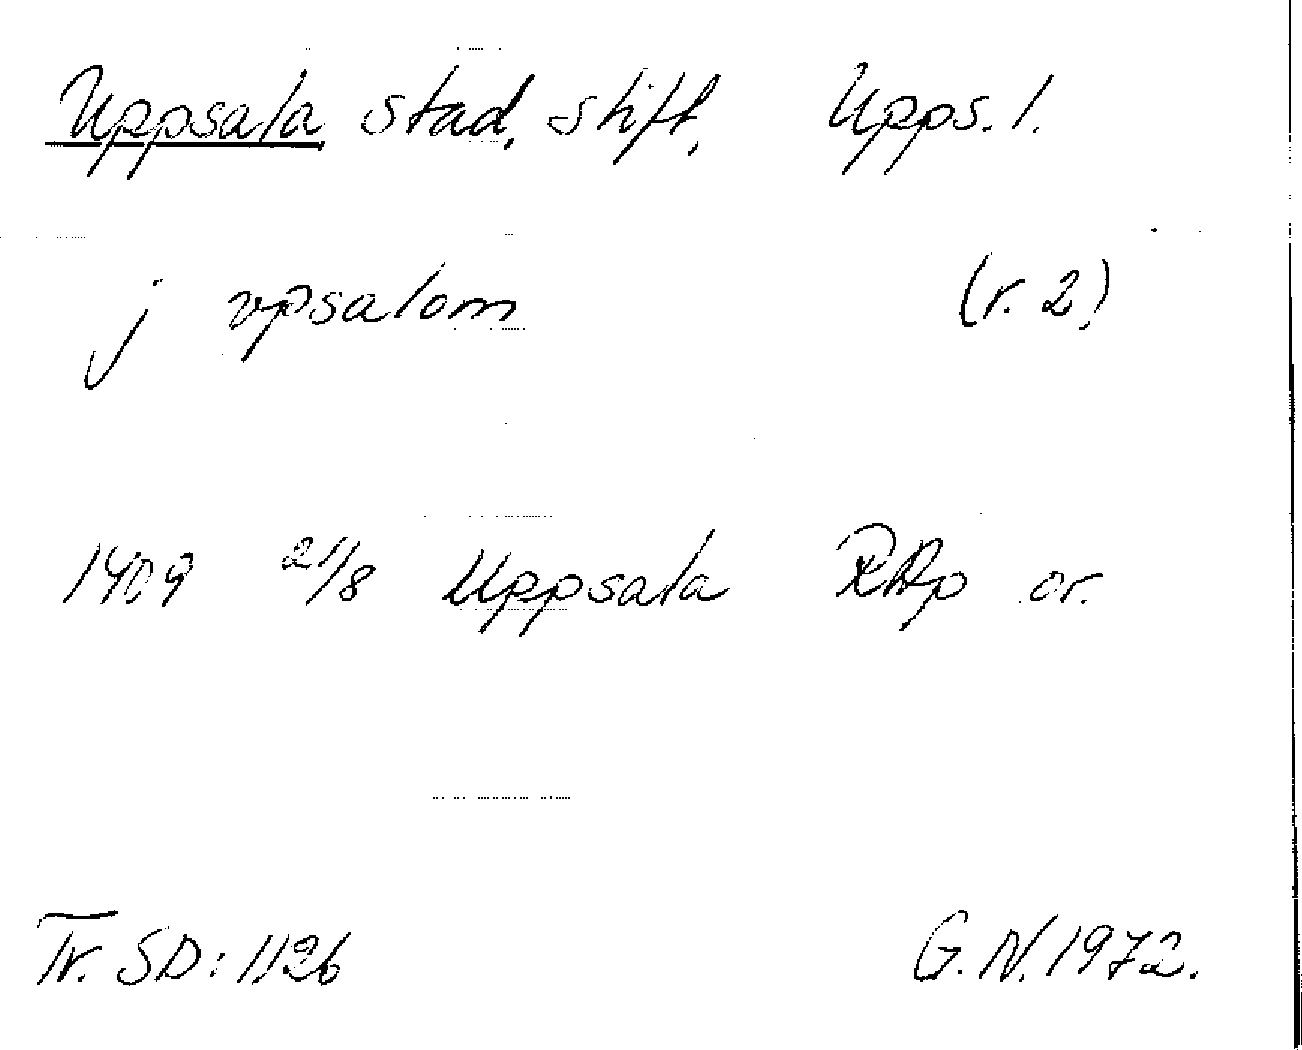 Uppsala stad, stift, Upps. l.
j vpsalom (r. 2)
1409 21/8 Uppsala RAp or.
Tr. SD: 1126 G. N. 1972.